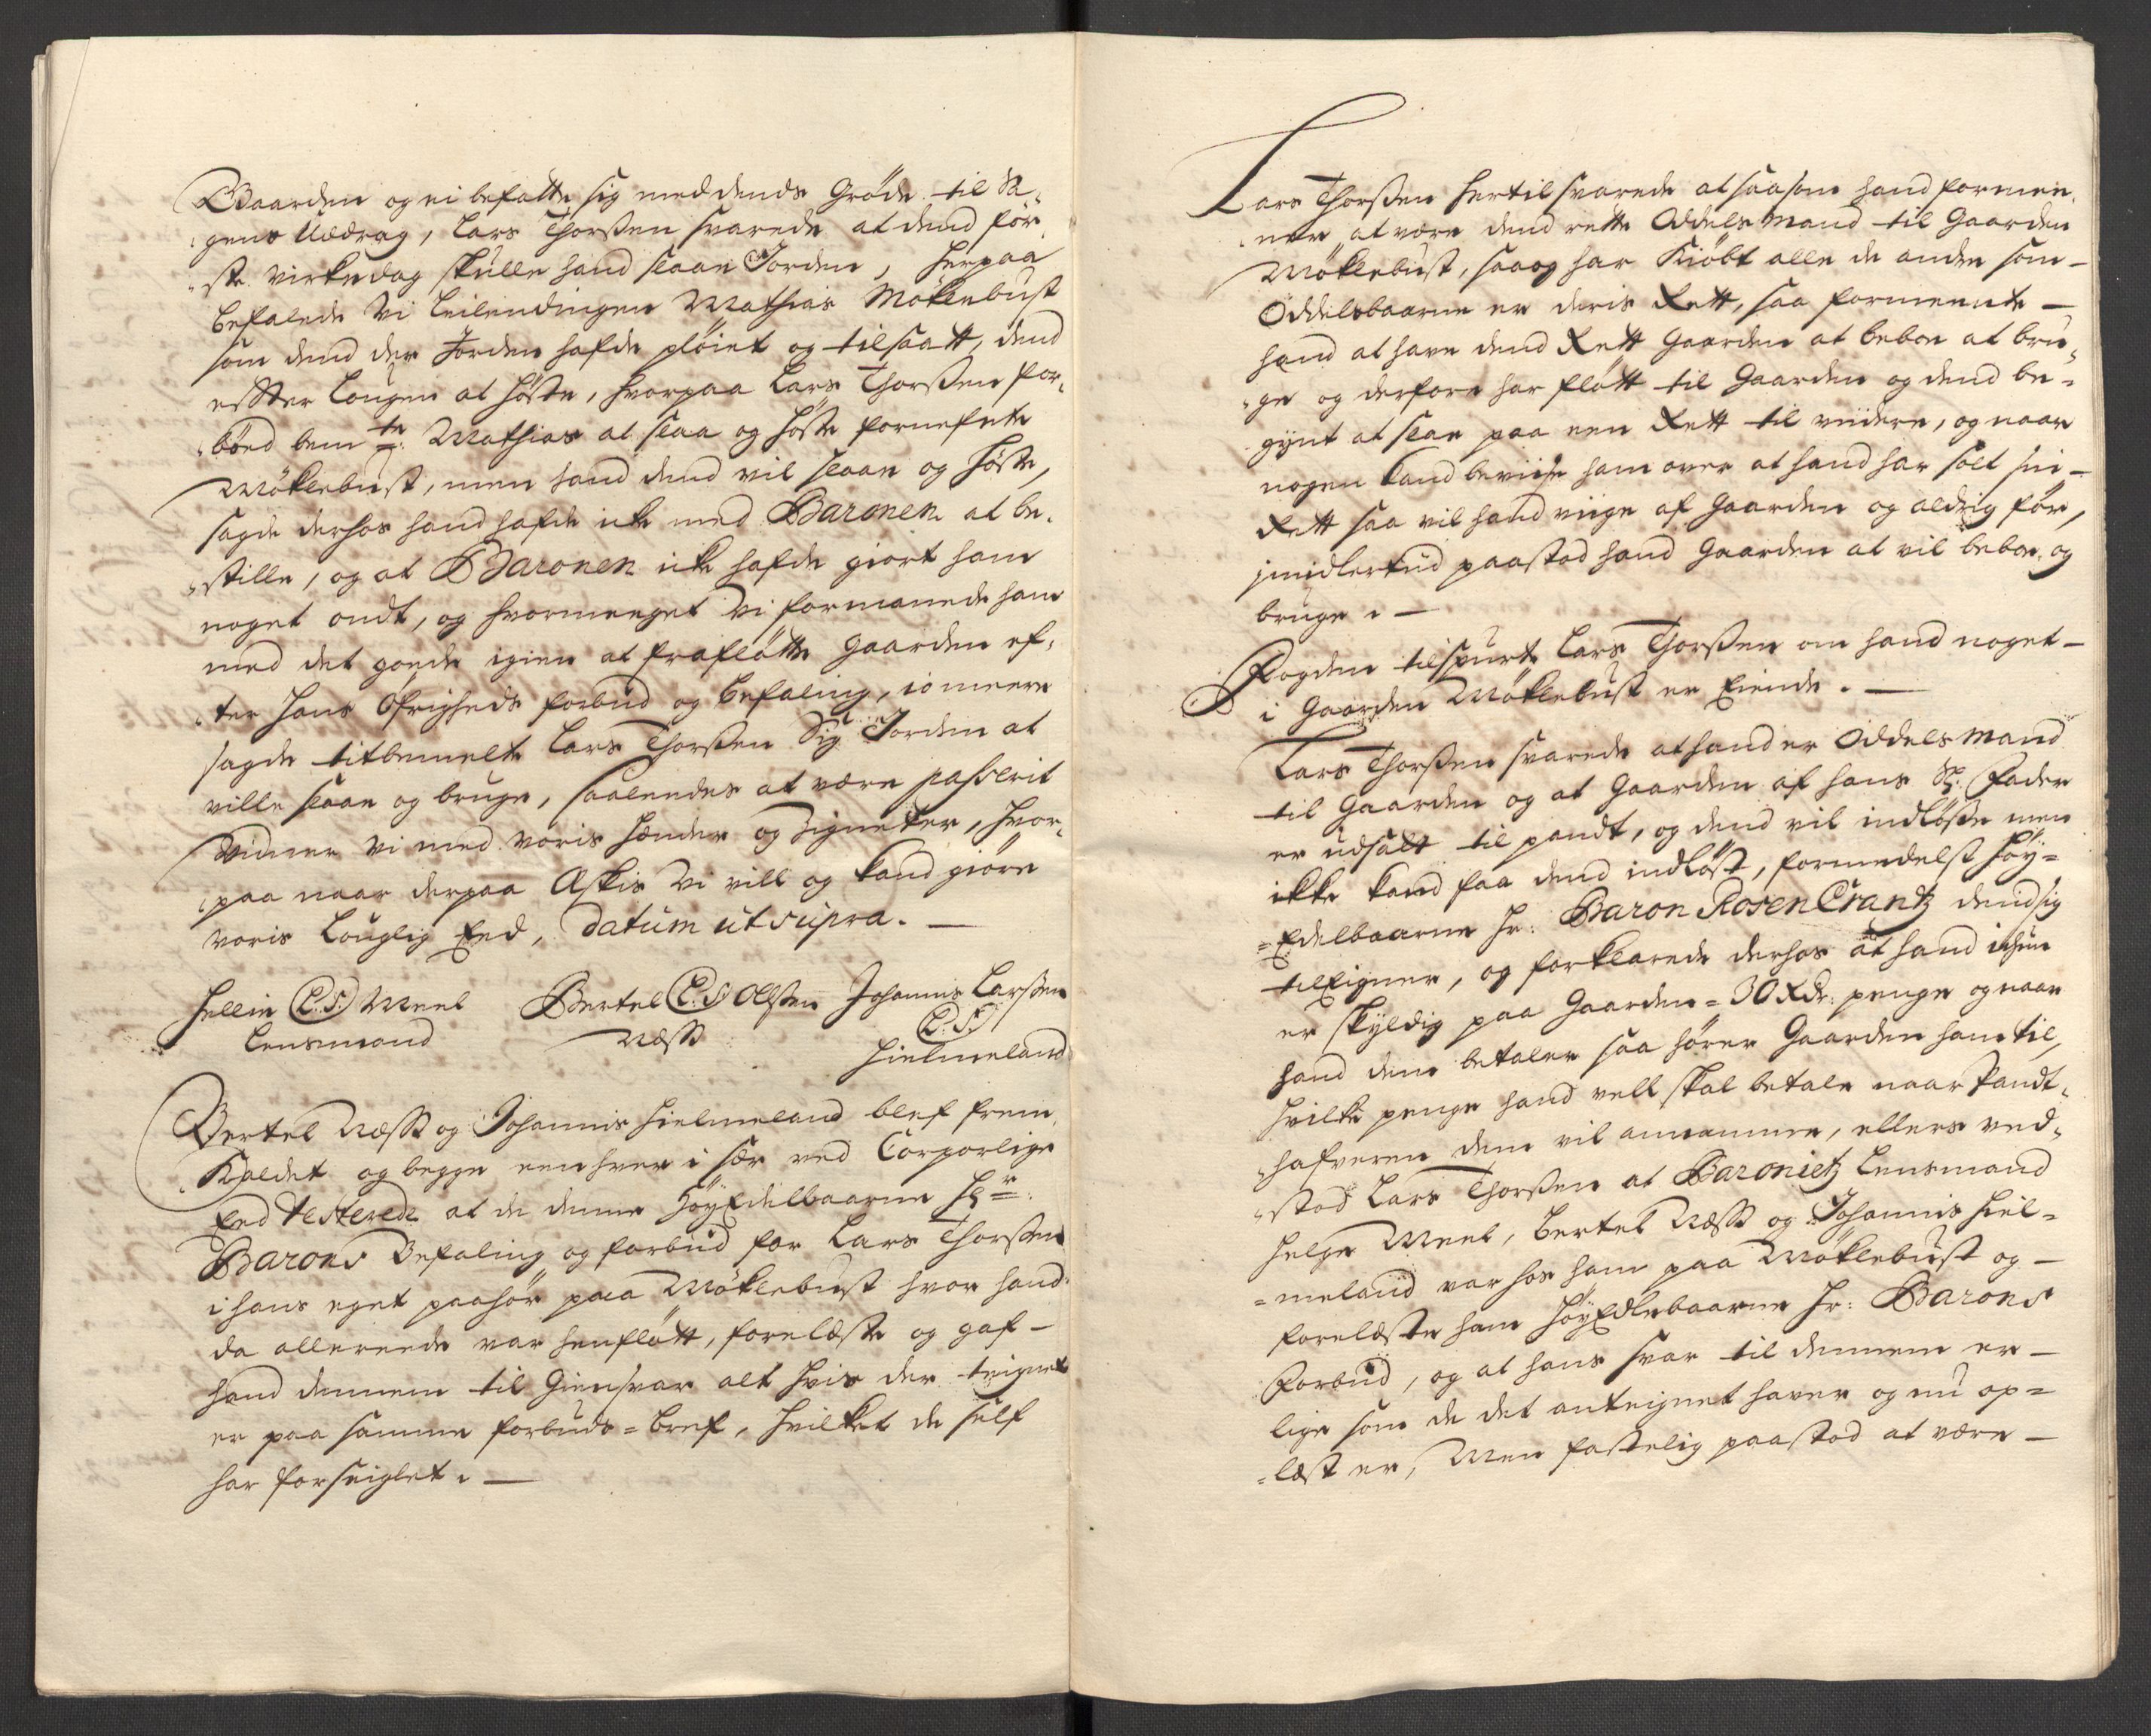 Gaarden og ei befatte sig med dends Grøde til Sa-
gens Uddrag, Lars Thorßen svarede at dend før-
ste virkedag skulle hand slaae Jorden, herpaa
befalede vi Leilendingen Mathias Møklebust
som dend der Jorden hafde pløiet og tilsaatt, dend
effter Lougen at høste, hvorpaa Lars Thorßen for-
bøed bemte: Mathias at slaa og høste fornefnte
Møklebust, men hand dend vil slaae og høste,
sagde derhos hand hafde icke med Baronen at be-
stille, og at Baronen icke hafde giort ham
noget ondt, og hvormeeget vi formanede ham
med det goede igien at fraflötte Gaarden ef-
ter Hans Øfrigheds forbud og befaling, io meere
sagde titbemelte Lars Thorßen Sig Jorden at
ville slaae og bruge, saaleedes at være passerit
vidner vi med voris hænder og Zigneter, hvor-
paa naar derpaa Æskis vi vill og kand giöre
voris Louglig Eed, datum ut supra. —
Hellie (L.S.) Meel Bertel (L.S.) Olßen Johannis Larßen
Lensmand Næss (L.S.)
Hielmeland
Bertel Næss og Johannis Hielmeland blef frem-
Kaldet og begge een hver i sær ved Corporlige
Eed Testerede at de denne HöyEdelbaarne Hr:
Barons Befaling og forbud for Lars Thorßen
i hans eget paahör paa Møklebust hvor hand
da allereede var henflött, forelæste og gaf —
hand dennem til Giensvar alt hvis der teignet
er paa samme forbuds-bref, hvilket de self
har forseiglet. —
Lars Thorßen hertil svarede at saasom hand formee-
ner at være dend rette Oddels Mand til Gaarden
Møklebust, saa og har Kiöbt alle de andre som —
Oddelsbaarne er deris Rett, saa formeente —
hand at have dend Rett Gaarden at beboe at bru-
ge og derfore har flött til Gaarden og dend be-
gynt at slae paa een Rett til viidere, og naar
nogen kand beviise ham over at hand har sölt sin —
Rett saa vil hand viige af Gaarden og aldrig för,
jmidlertiid paastod hand Gaarden at vil beboe og
bruge. —
Fogden tilspurte Lars Thorßen om hand noget —
i Gaarden Møklebust er Eiende. —
Lars Thorßen svarede at hand er Oddels Mand
til Gaarden og at Gaarden af hans Sl: Fader
er udsalt til pandt, og dend vil indlöße men
ikke kand faa dend indlöst, formedelst Höy-
Edelbaarne Hr: Baron RosenCrantz dend sig
tilEigner, og forklarede derhos at hand ickun
er skyldig paa Gaarden = 30 Rdr: penge og naar
hand dem betaler saa hörer Gaarden ham til,
hvilke penge hand vell skal betale naar Pandt-
hafveren dem vil annamme, ellers ved-
stod Lars Thorßen at Baroniets Lensmand
Helge Meel, Bertel Næss og Johannis Hiel-
meland var hos ham paa Møklebust og —
forelæste ham HöyEdlebaarne Hr: Barons
Forbud, og at hans svar til dennem er —
lige som de det antegnet haver og nu op-
læst er, Men fastelig paastod at være —